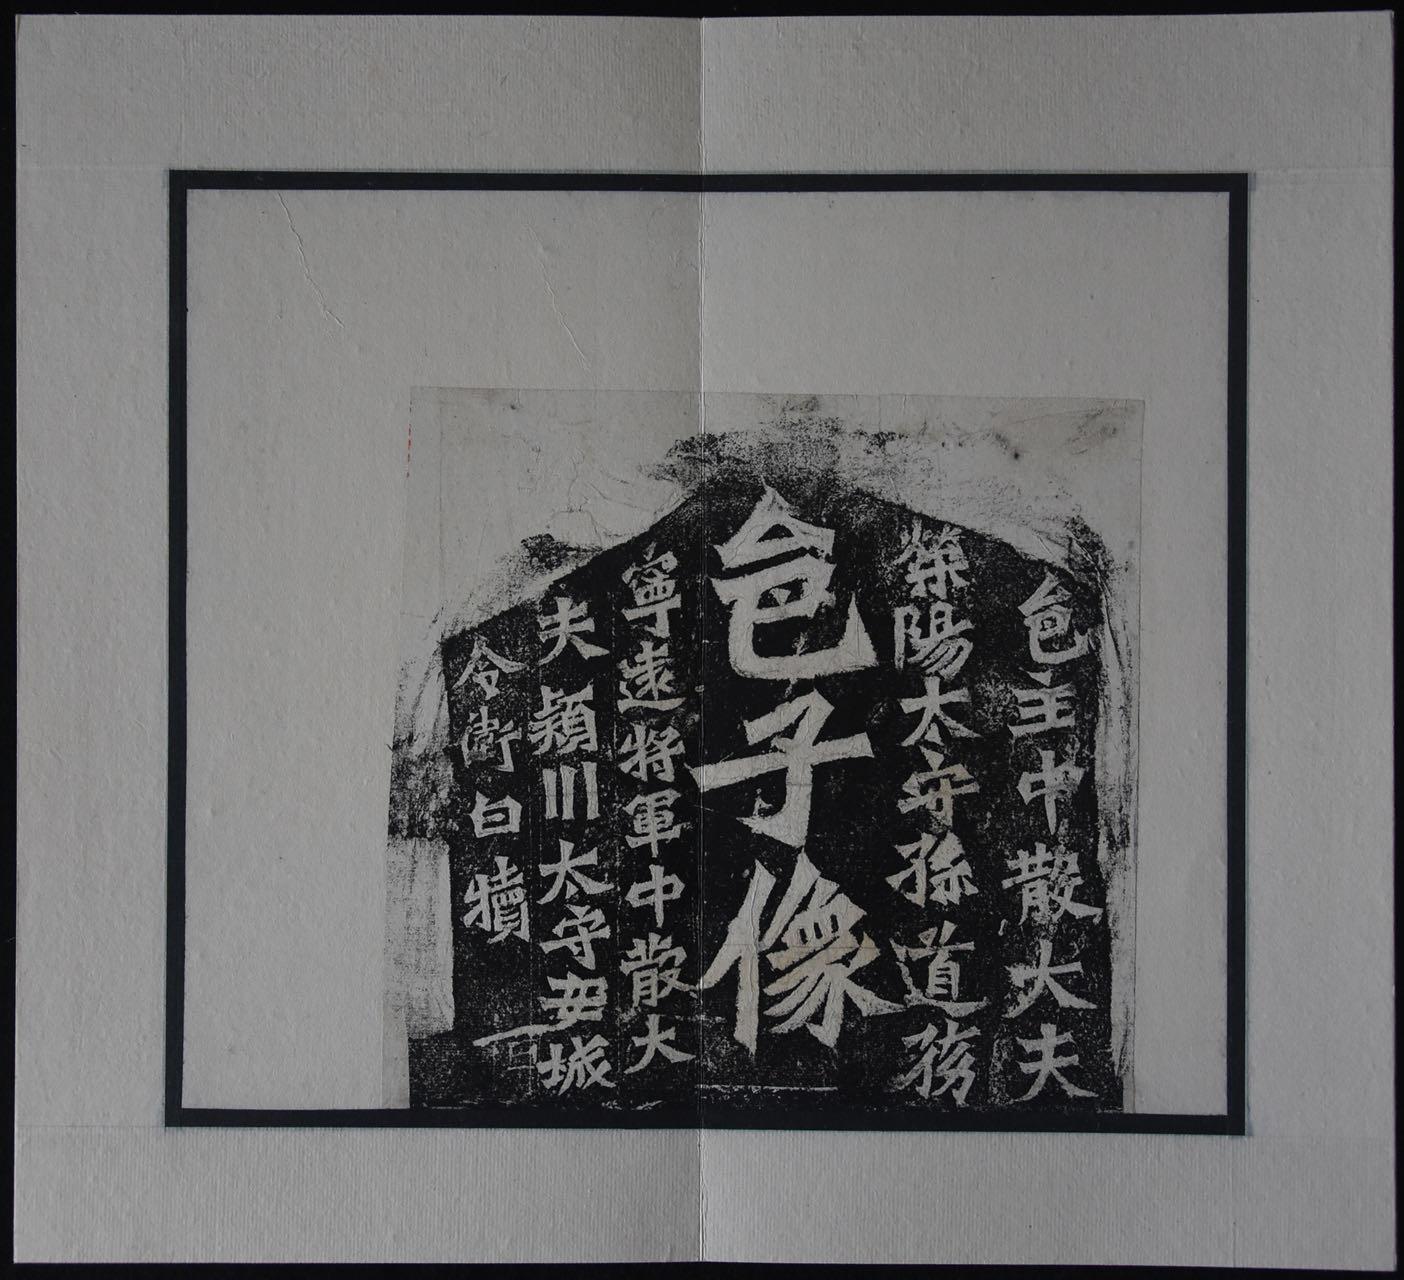 邑主中散大夫
滎陽太守孫道務
邑子像
寧遠將軍中散大
夫潁川太守安城
令衛白犢